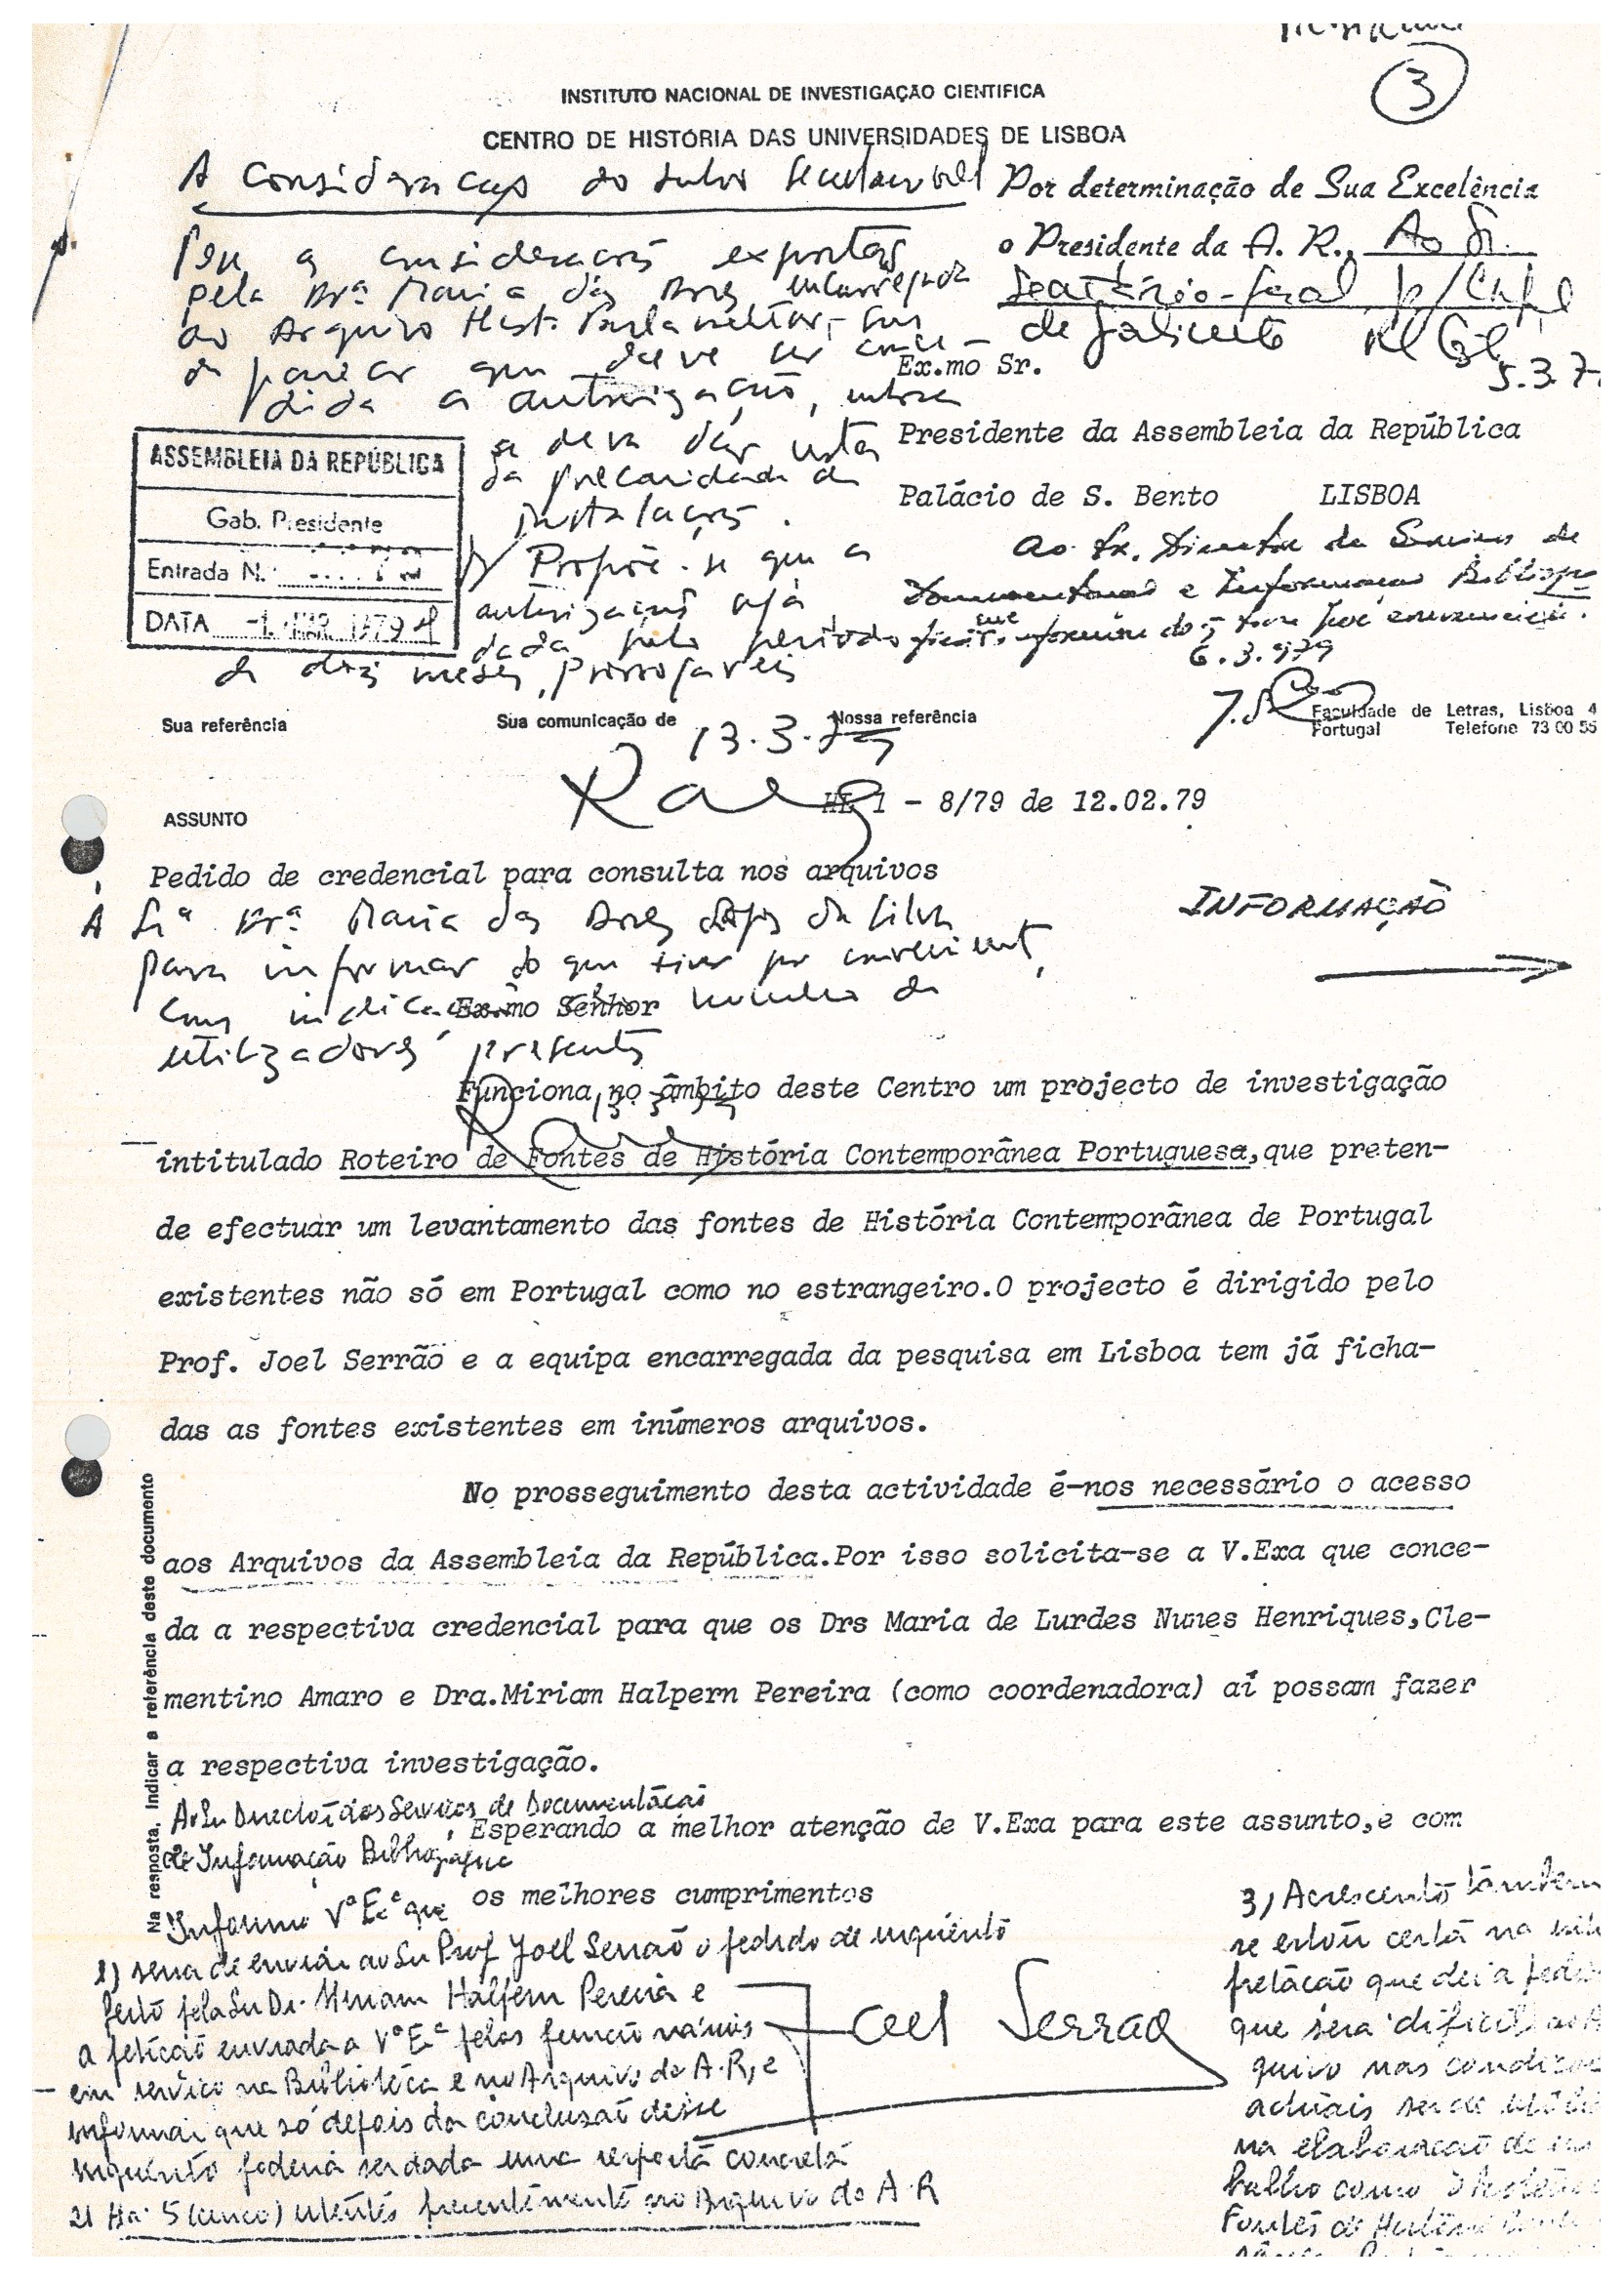 3
INSTITUTO NACIONAL DE INVESTIGAÇÃO CIENTIFICA
CENTRO DE HISTÓRIA DAS UNIVERSIDADES DE LISBOA
A Consideração do
Por determinação de Sua Excelência
o Presidente da A. R., Ao Sr.
Secretário-Geral p/
de Gabinete
5.3.7
as considerações expostas
pela Drª Maria das Dores, encarregada
do Arquivo Hist. Parlamentar, sou
de parecer que deve ser conce-
dida a autorização, embora
se deva dar nota
da precaridade de
instalações.
Propõe-se que a
autorização seja
dada pelo período
de dois meses, prorrogáveis
13.3.79
Ex.mo Sr.
Presidente da Assembleia da República
Palácio de S. Bento LISBOA
ASSEMBLEIA DA REPÚBLICA
Gab. Presidente
Entrada N.
DATA -1. MAR. 1979
Ao Sr. Director de Serviços de
e Informação
6.3.979
Sua referência
Sua comunicação de
Nossa referência
Faculdade de Letras, Lisboa 4
Portugal Telefone 73 00 55
1 - 8/79 de 12.02.79
ASSUNTO
Pedido de credencial para consulta nos arquivos
A Srª Drª Maria das Dores Lopes da Silva
para informar do que tiver por conveniente,
com indicação número de
utilizadores presentes
INFORMAÇÃO
Ex.mo Senhor
Funciona no âmbito deste Centro um projecto de investigação
intitulado Roteiro de Fontes de História Contemporânea Portuguesa,que preten-
de efectuar um levantamento das fontes de História Contemporânea de Portugal
existentes não só em Portugal como no estrangeiro.O projecto é dirigido pelo
Prof. Joel Serrão e a equipa encarregada da pesquisa em Lisboa tem já ficha-
das as fontes existentes em inúmeros arquivos.
No prosseguimento desta actividade é-nos necessário o acesso
aos Arquivos da Assembleia da República.Por isso solicita-se a V.Exa que conce-
da a respectiva credencial para que os Drs Maria de Lurdes Nunes Henriques,Cle-
mentino Amaro e Dra.Miriam Halpern Pereira (como coordenadora) aí possam fazer
a respectiva investigação.
Esperando a melhor atenção de V.Exa para este assunto,e com
os melhores cumprimentos
Joel Serrão
Na resposta, indicar a referência deste documento
Ao Sr Director dos Serviços de Documentação
de Informação Bibliográfica
Informo Vª Exª que
1) seria de enviar ao Sr Prof Joel Serrão o pedido de inquérito
feito pela Sr Dr. Miriam Halpern Pereira e
a petição enviada a Vª Exª pelos funcionários
em serviço na Biblioteca e no Arquivo da A.R, e
informar que só depois da conclusão desse
inquérito poderá ser dada uma resposta concreta
2) Há 5 (cinco) utentes presentemente no Arquivo da A.R
3) Acrescento também
se estou certa na inter
pretação que dei a pedi
que será dificil ao Ar
quivo nas condições
actuais ser de utili
na elaboração de
balho como o Roteiro
Fontes de História